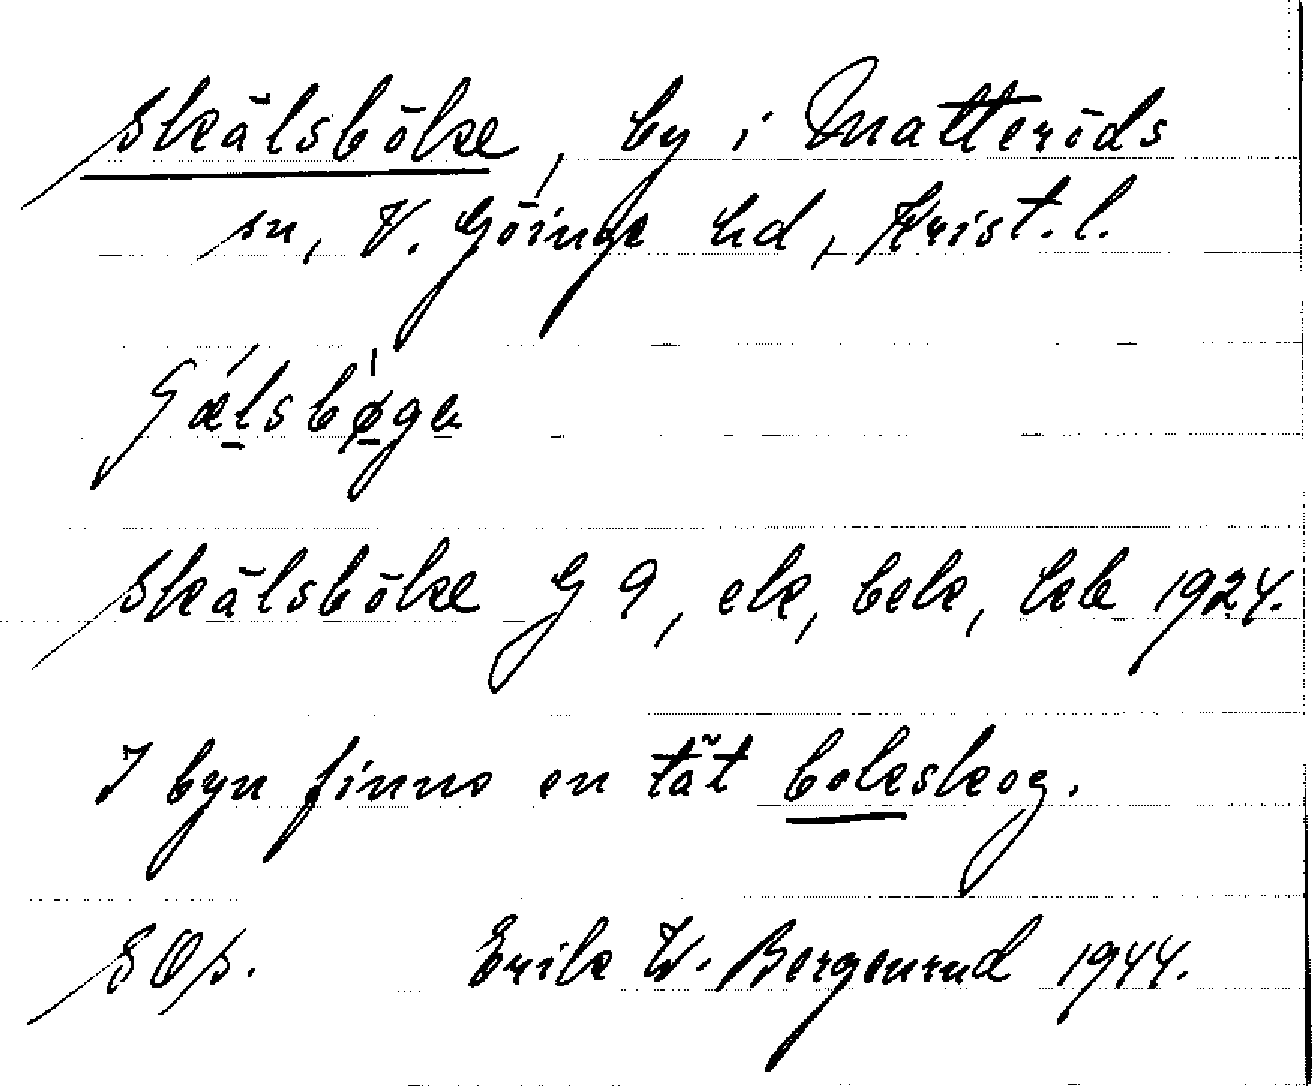 Skälsböke, by i Matteröds
sn, V. Göinge hd, Krist. l.
ʃǽlsbø̍gə
Skälsböke G 9, ek, bek, kek 1924.
I byn finns en tät bokskog.
SOp. Erik W. Bergenrud 1944.